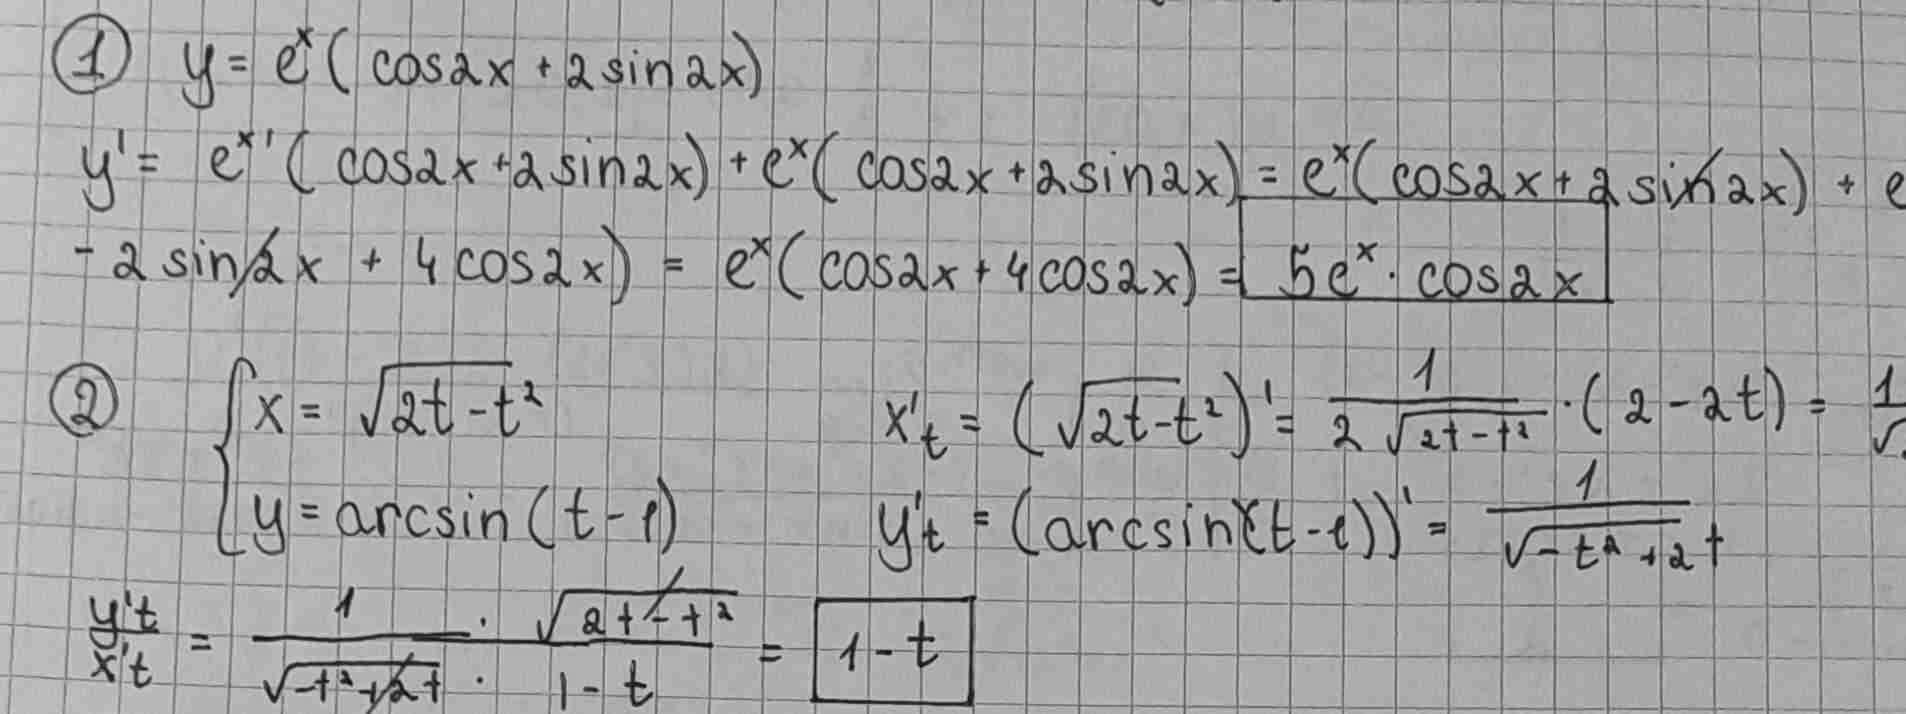 ① y = eˣ( cos2x + 2 sin2x)
y' = eˣ' ( cos2x + 2 sin2x) + eˣ( cos2x + 2 sin2x) = eˣ( cos2x + 2 sin2x) + e
- 2 sin2x + 4 cos2x) = eˣ( cos2x + 4 cos2x) = 5eˣ · cos2x
② { x = √(2t - t²)    x't = (√(2t - t²))' = 1/(2√(2t - t²)) · (2 - 2t) = 1/√
y = arcsin(t - 1)    y't = (arcsin(t - 1))' = 1/√(-t² + 2t)
y't/x't = 1/√(-t² + 2t) · √(2t - t²)/(1 - t) = 1 - t